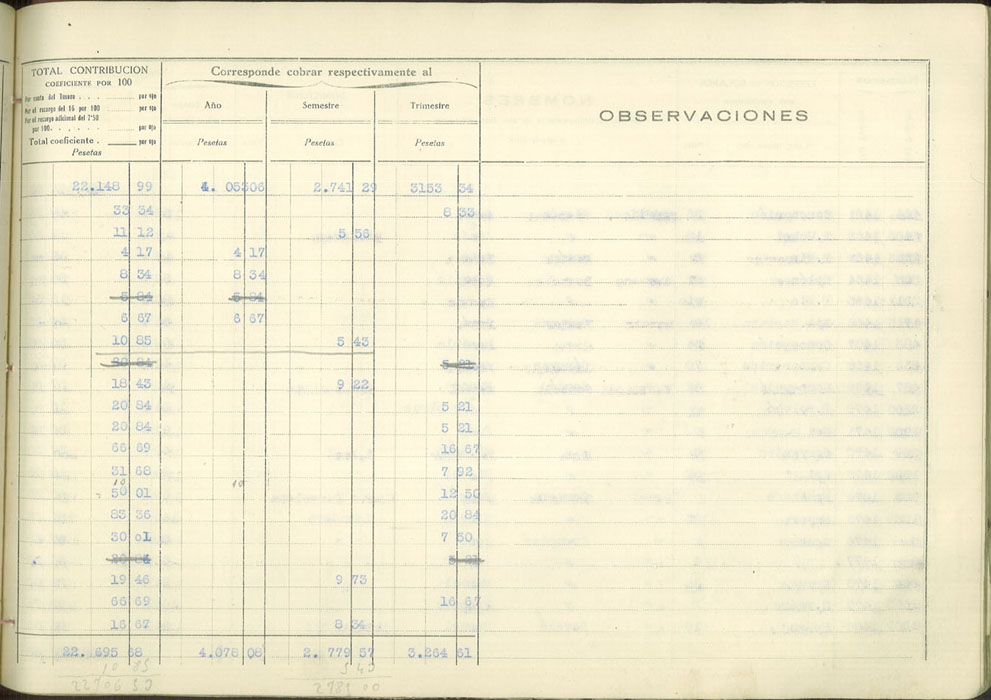 TOTAL CONTRIBUCION
COEFICIENTE POR 100
Por cuota del Tesoro . . . por 0/0
Por el recargo del 16 por 100 por 0/0
Por el recargo adicional del 7'50
por 100. . . . . . por 0/0
Total coeficiente . por 0/0
Pesetas
Corresponde cobrar respectivamente al
Año Semestre Trimestre
Pesetas Pesetas Pesetas
OBSERVACIONES
22.148 99 4. 05306 2.741 29 3153 34
33 34 8 33
11 12 5 56
4 17 4 17
8 34 8 34
5 84 5 84
6 67 6 67
10 85 5 43
20 84 5 21
18 43 9 22
20 84 5 21
20 84 5 21
66 69 16 67
31 68 7 92
10 10
50 01 12 50
83 36 20 84
30 01 7 50
20 84 5 21
19 46 9 73
66 69 16 67
16 67 8 34
22.695 68 4.078 08 2.779 57 3.264 61
10 85 5 43
22706 53 2785 00